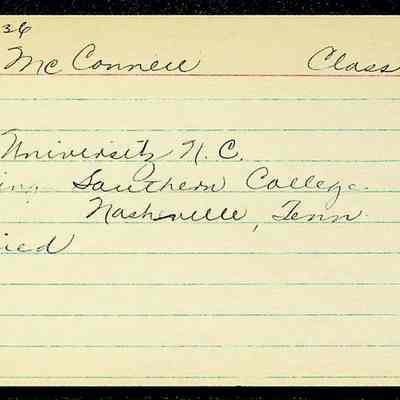 36
McConnell Class
University N.C.
ing Southern College
Nashville, Tenn
ied